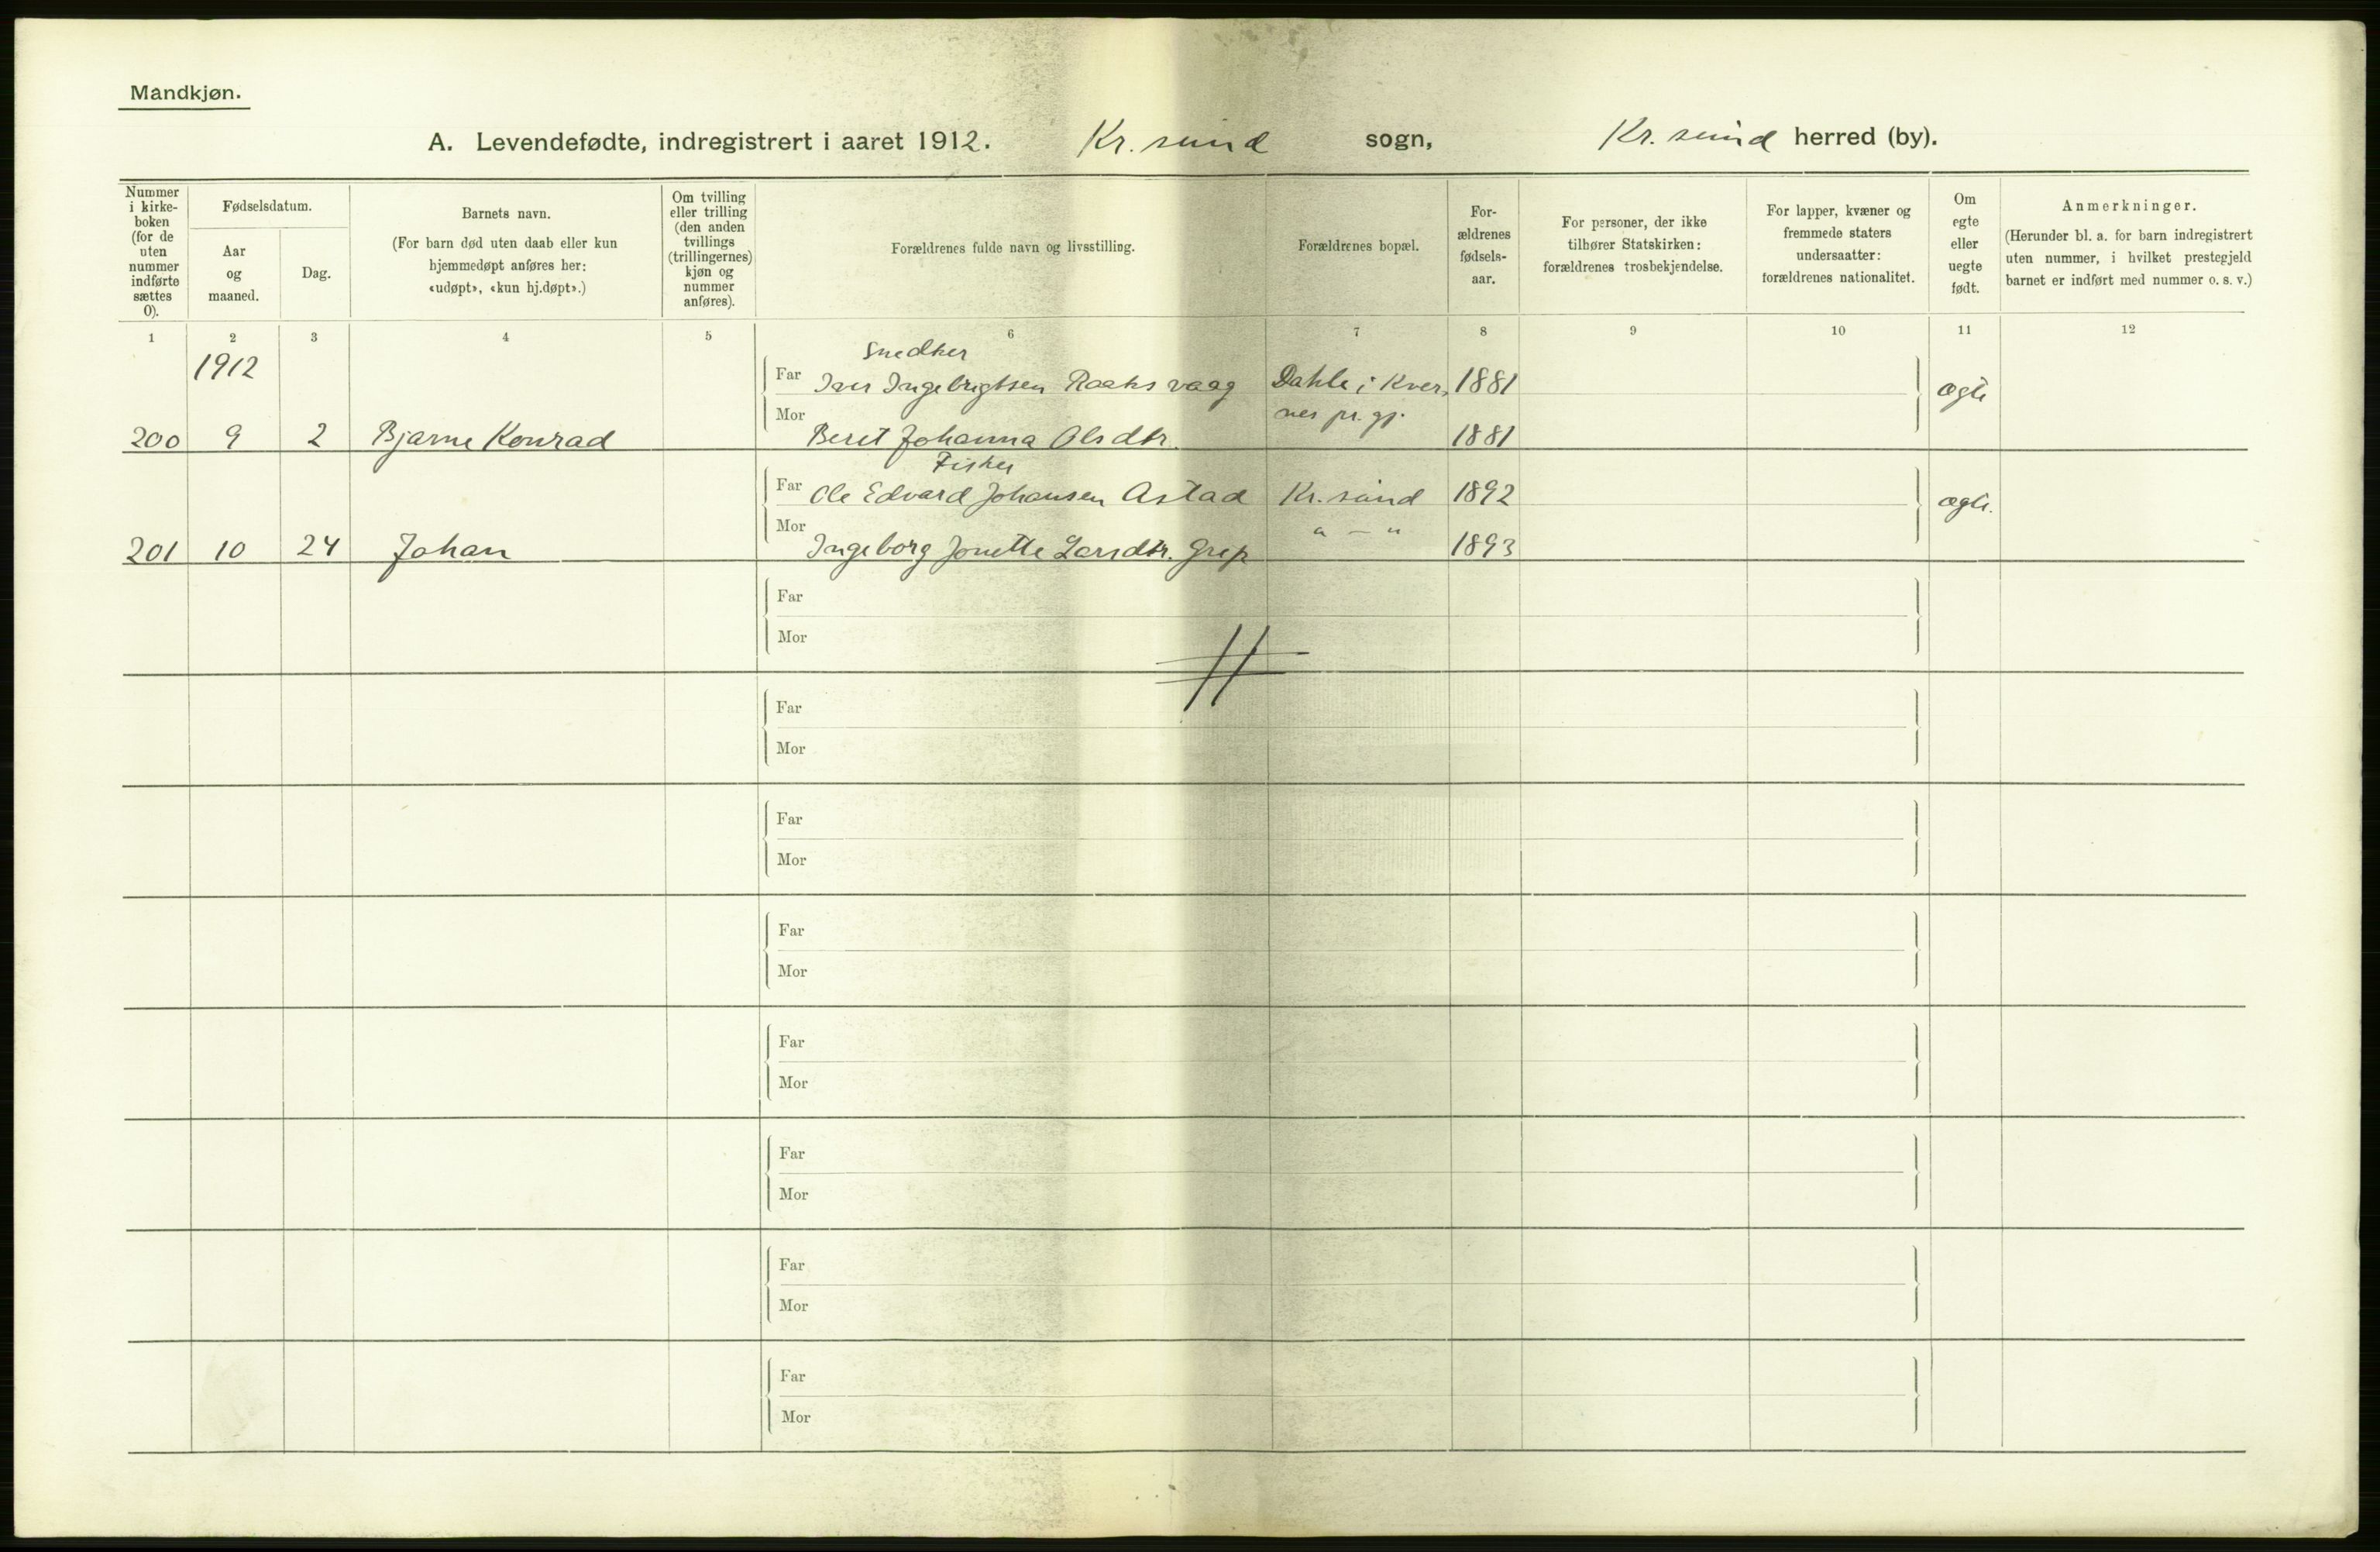 Mandkjøn.
A. Levendefødte, indregistrert i aaret 1912. Kr. sund sogn, Kr. sund herred (by).
Nummer i kirke-boken (for de uten nummer indførte sættes 0).
Fødselsdatum.
Aar og maaned.
Dag.
Barnets navn.
(For barn død uten daab eller kun hjemmedøpt anføres her: «udøpt», «kun hj.døpt».)
Om tvilling eller trilling (den anden tvillings (trillingernes) kjøn og nummer anføres).
Forældrenes fulde navn og livsstilling.
Forældrenes bopæl.
For-ældrenes fødsels-aar.
For personer, der ikke tilhører Statskirken: forældrenes trosbekjendelse.
For lapper, kvæner og fremmede staters undersaatter: forældrenes nationalitet.
Om egte eller uegte født.
Anmerkninger.
(Herunder bl. a. for barn indregistrert uten nummer, i hvilket prestegjeld barnet er indført med nummer o. s. v.)
1 2 3 4 5 6 7 8 9 10 11 12
1912
Snedker
Far Iver Ingebrigtsen Raaksvaag Dahle i Kver- 1881 ægte
Mor nes pr. gj.
200 9 2 Bjarne Konrad Berit Johanna Olsdtr. 1881
Fisker
Far Ole Edvard Johansen Astad Kr. sund 1892 ægte.
Mor " — "
201 10 24 Johan Ingeborg Jonette Larsdtr. Grip 1893
Far
Mor
Far
Mor
Far
Mor
Far
Mor
Far
Mor
Far
Mor
Far
Mor
Far
Mor